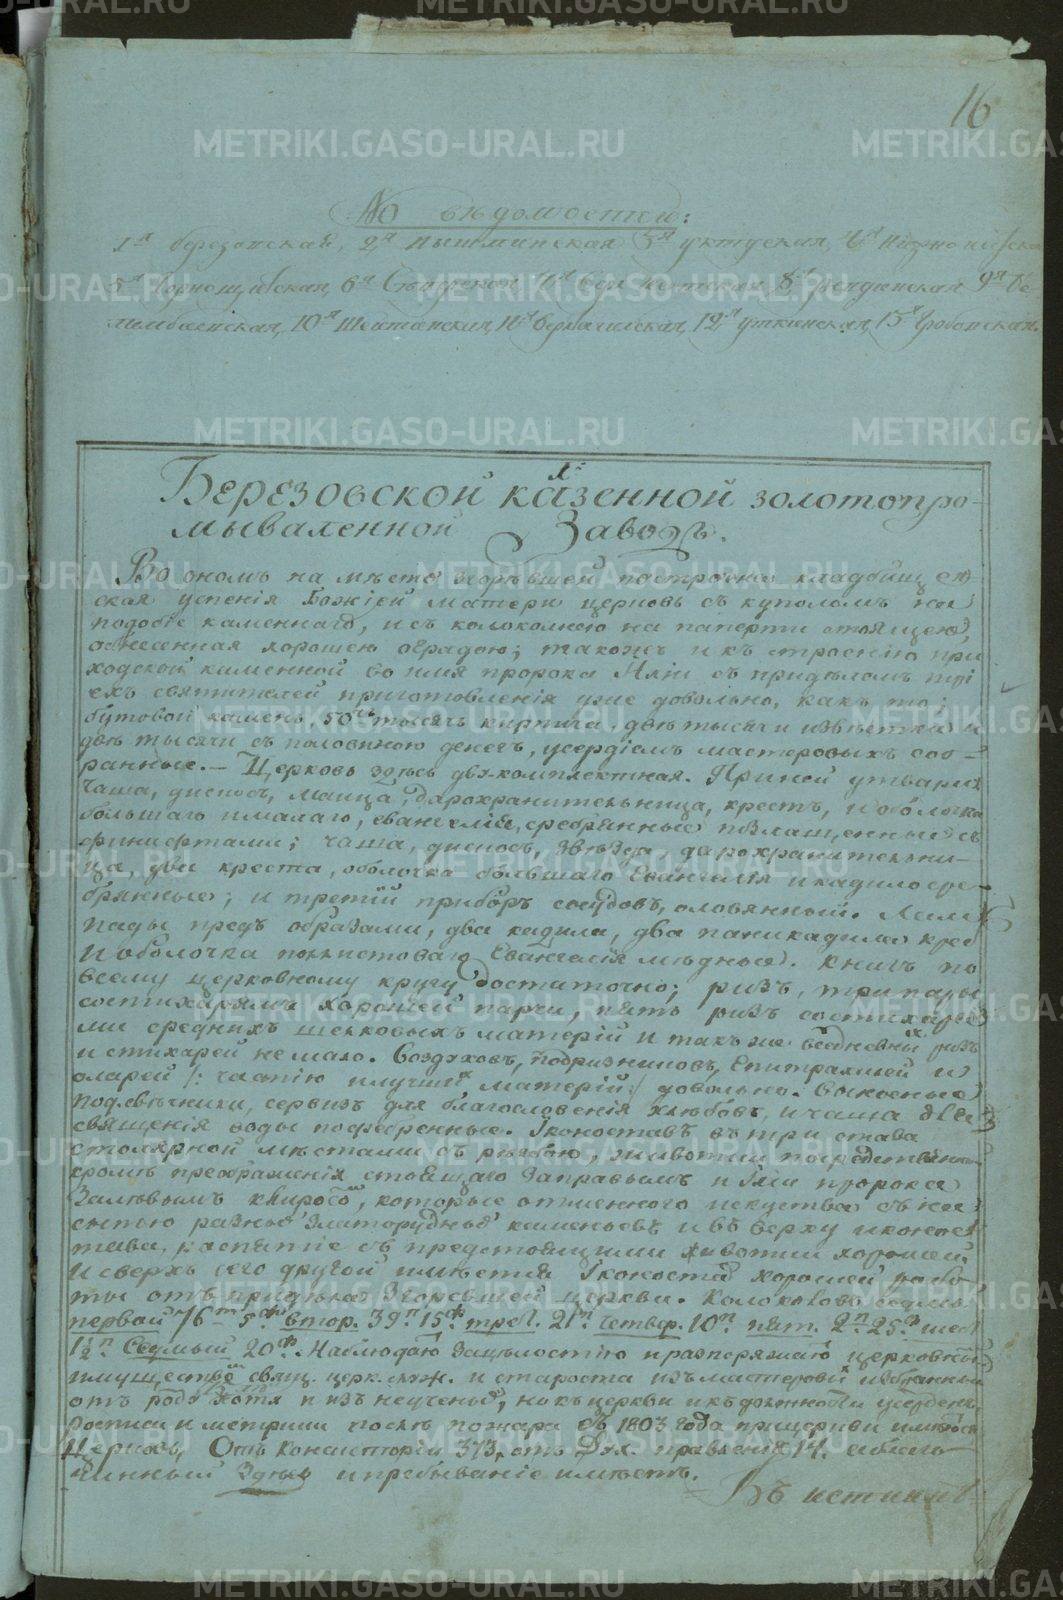 16
По ведомостей:
1я березовская, 2я пышминская 3я уктуская, 4я Нижноисецкая
5я Горнощитская, 6я Сысерской 7я Вер 8я Ревдинская 9я Би
лимбаевская, 10я Шейтанская, 11я Верхотагилская, 12я уткинская, 13я Гробовская.
1е
Березовской казенной золотопро-
мываленной Заводъ.
Во ономъ на место згоревшей построена кладбищен
ская успения Божией матери церковь съ куполомъ на
подобие каменнаго, и съ колокольнею на паперти стоящею,
обнесенная хорошею оградою; такожъ и къ строению при
ходской каменной во имя пророка Илии съ приделомъ трі
ехъ святителей приготовления уже довольно, какъ то:
бутовой камень, 50ть тысячъ кирпича две тысячи известки и
две тысячи съ половиною денегъ, усердіемъ мастеровыхъ соб-
ранные. – Церковь здесь двухкомплектная. При ней утварь:
чаша, дискосъ, лжица, дарохранительница, крестъ, и оболочка
большаго и малаго, евангелія, сребрянные позлащенные съ
финифтами; чаша, дискосъ, звезда, дарохранительни-
ца, два креста, оболочка большаго Евангелия и кадило сре-
брянные; и третій приборъ сосудовъ, оловянный. Лам
пады предъ образами, два кадила, два паникадила крес
и оболочка полистоваго Евангелія медные. Книгъ по
всему церковному кругу достаточно; ризъ, три пары
состихарями хорошей парчи, пять ризъ состихаря
ми среднихъ шелковыхъ материй и такъ же вседневныхъ ризъ
и стихарей не мало. Воздуховъ, подризниковъ, Епитрахилей и
орарей /: частію и лучшихъ материй :/ довольно. Выносные
подсвечники, сервизъ для благословения хлебовъ, и чаша для
священия воды посребренные. Иконостасъ въ три става
столярной местами съ резьбою, живописи посредственной
кроме преображения стоящаго заправымъ и Илии пророка
залевымъ клиросомъ, которые отменного искуства съ на
сыпью разныхъ златорудныхъ каменьевъ и въ верху иконос
таса, распятие съ предстоящими живописи хорошей.
И сверхъ сего другой имеется Иконостасъ хорошей рабо
ты отъ придела згоревшей церкви. Колоколовъ седмь:
первой 76п 5ф втор. 39п 15ф трет. 21п четвер. 10п пят. 2п 25ф шест
1½п Седмый 20ф. Наблюдаютъ зацелостію и разпоряжаютъ церковнымъ
имуществомъ свящ. церк. служ. и староста изъ мастеровыхъ избранный
отъ рода хотя и изъ неученыхъ, но къ церкви и къ должности усерденъ.
росписи и метрики после пожара съ 1803 года прицеркви имеются
церковь, Отъ Консистории 373, отъ Дух. правления 14. 
чинный Здесь и пребываніе иметь.
Въ истин
METRIKI.GASO-URAL.RU